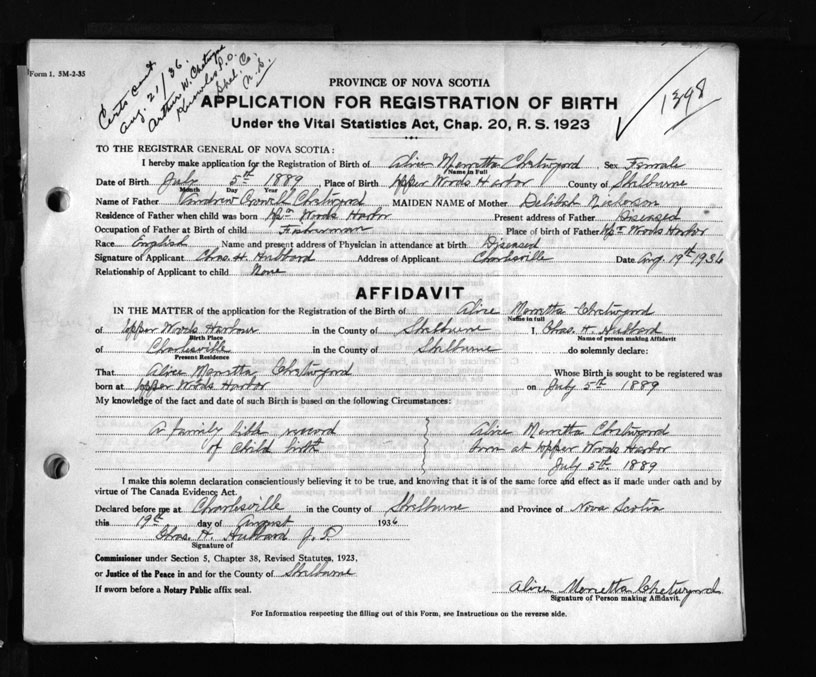 Form 1. 5M-2-35
Certs sent
Aug. 21/36.
Arthur W. Chetwynd
P.O.
Shel. Co.
N.S.
1398
PROVINCE OF NOVA SCOTIA
APPLICATION FOR REGISTRATION OF BIRTH
Under the Vital Statistics Act, Chap. 20, R. S. 1923
TO THE REGISTRAR GENERAL OF NOVA SCOTIA:
I hereby make application for the Registration of Birth of Alice Merretta Chetwynd Sex Female
Name in Full
Date of Birth July 5th 1889 Place of Birth Upper Woods Harbor County of Shelburne
Month Day Year
Name of Father Andrew Crowell Chetwynd MAIDEN NAME of Mother Delilah Nickerson
Residence of Father when child was born Upr Woods Harbor Present address of Father Diseased
Occupation of Father at Birth of child Fisherman Place of birth of Father Upr Woods Harbor
Race English Name and present address of Physician in attendance at birth Diseased
Signature of Applicant Chas. H. Hubbard Address of Applicant Charlesville Date Aug. 19th 1936
Relationship of Applicant to child None
AFFIDAVIT
IN THE MATTER of the application for the Registration of the Birth of Alice Merretta Chetwynd
Name in full
of Upper Woods Harbour in the County of Shelburne I, Chas. H. Hubbard
Birth Place Name of person making Affidavit
of Charlesville in the County of Shelburne do solemnly declare:
Present Residence
That Alice Merretta Chetwynd Whose Birth is sought to be registered was
born at Upper Woods Harbor on July 5th 1889
My knowledge of the fact and date of such Birth is based on the following Circumstances:
A family bible record Alice Merretta Chetwynd
of Child birth born at Upper Woods Harbor
July 5th 1889
I make this solemn declaration conscientiously believing it to be true, and knowing that it is of the same force and effect as if made under oath and by
virtue of The Canada Evidence Act.
Declared before me at Charlesville in the County of Shelburne and Province of Nova Scotia
this 19th day of August 1936
Chas. H. Hubbard J. P.
Signature of
Commissioner under Section 5, Chapter 38, Revised Statutes, 1923,
or Justice of the Peace in and for the County of Shelburne
If sworn before a Notary Public affix seal. Alice Merretta Chetwynd
Signature of Person making Affidavit.
For Information respecting the filling out of this Form, see Instructions on the reverse side.